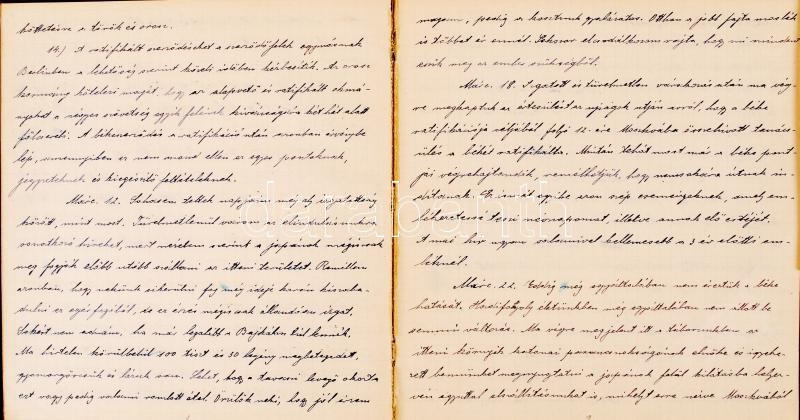 köttetésre a török és orosz.
14.) A ratifikált szerződéseket a szerződő felek egymásnak
Berlinben a lehetőség szerint közeli időben kézbesítik. Az orosz
kormány kötelezi magát, hogy az alapvető és ratifikált okmá-
nyokat a négyes szövetség egyik felének kívánságára két hét alatt
fölcseréli. A békeszerződés a ratifikáció után azonban érvénybe
lép, amennyiben ez nem mond ellen az egyes pontoknak,
jegyzeteknek és kiegészítő feltételeknek.
Márc. 12. Sohasem teltek napjaim még oly izgatottság
között, mint most. Türelmetlenül várom az elindulásunkra
vonatkozó híreket, mert nézetem szerint a japánok mégiscsak
meg fogják előbb utóbb szállani az itteni területet. Remélem
azonban, hogy nekünk sikerülni fog még idejé korán kiszaba-
dulni az egérfogóból, de ez érzés mégiscsak állandóan izgat.
Sokat nem adnám, ha már legalább a Bajkálon túl lennék.
Ma hirtelen körülbelül 100 tiszt és 30 legény megbetegedett,
gyomorgörcsük és lázuk van. Lehet, hogy a tavaszi levegő okozta
ezt vagy pedig valami romlott étel. Örülök neki, hogy jól érzem
magam, pedig a kosztunk gyalázatos. Otthon a jobb fajta moslék
is többet ér ennél. Sokszor elcsodálkozom rajta, hogy mi mindent
eszik meg az ember szükségből.
Márc. 18. Izgatott és türelmetlen várakozás után ma vég-
re megkaptuk az értesülést az ujságok utján arról, hogy a béke
ratifikációja céljából folyó 12-ére Moszkvába összehívott tanács-
ülés a békét ratifikálta. Miután tehát most már a béke pont-
jai végrehajtandók, remélhetjük, hogy nemsokára útnak in-
dítanak. Ez ismét egyike azon szép eseményeknek, amely em-
lékezetessé teszi névnapomat, illetve annak előestéjét.
A mai hír ugyan valamivel kellemesebb a 3 év előtti em-
léknél.
Márc. 22. Eddig még egyáltalában nem éreztük a béke
hatását. Hadifogoly életünkben még egyáltalában nem állott be
semmi változás. Ma végre megjelent itt a táborunkban az
itteni környék katonai parancsnokságának elnöke és igyeke-
zett bennünket megnyugtatni a japánok falál kilátásba helyez-
ven egyuttal elszállításunkat is, mihelyt erre nézve Moszkvából